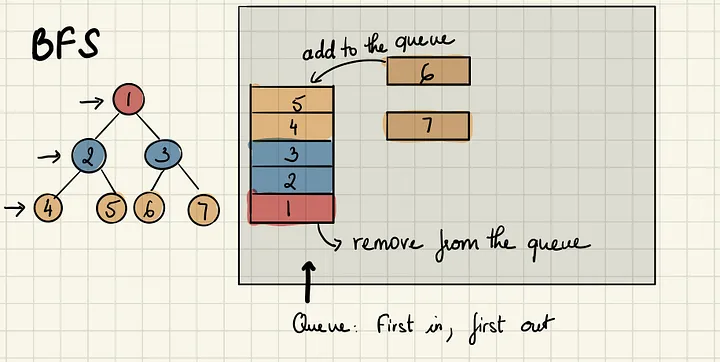 BFS
1
2 3
4 5 6 7
add to the queue
6
7
5
4
3
2
1
remove from the queue
Queue: First in, first out